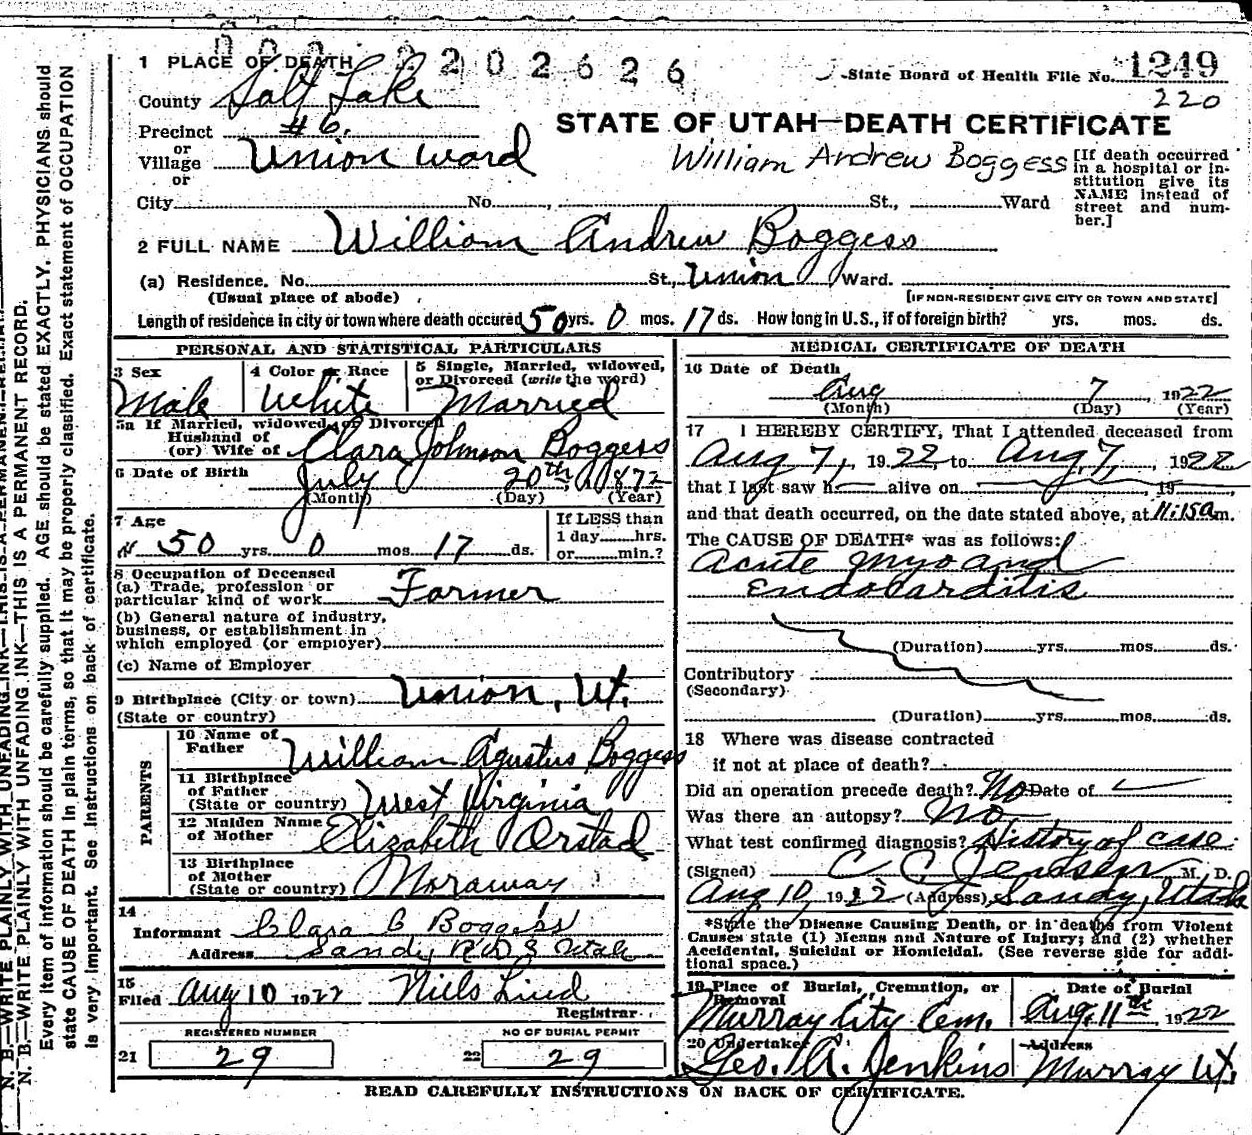 202626
1 PLACE OF DEATH
State Board of Health File No. 1249
220
County Salt Lake
Precinct #6.
or
Village Union Ward
or
STATE OF UTAH—DEATH CERTIFICATE
William Andrew Boggess
[If death occurred in a hospital or institution give its NAME instead of street and number.]
City No. St., Ward
2 FULL NAME William Andrew Boggess
(a) Residence. No. St., Union Ward.
(Usual place of abode)
[IF NON-RESIDENT GIVE CITY OR TOWN AND STATE]
Length of residence in city or town where death occured 50 yrs. 0 mos. 17 ds. How long in U.S., if of foreign birth? yrs. mos. ds.
PERSONAL AND STATISTICAL PARTICULARS
3 Sex
Male
4 Color or Race
White
5 Single, Married, widowed, or Divorced (write the word)
Married
5a If Married, widowed or Divorced
Husband of
(or) Wife of Clara Johnson Boggess
6 Date of Birth July 20th, 1872
(Month) (Day) (Year)
7 Age
50 yrs. 0 mos. 17 ds.
If LESS than
1 day hrs.
or min.?
8 Occupation of Deceased
(a) Trade, profession or
particular kind of work Farmer
(b) General nature of industry,
business, or establishment in
which employed (or employer)
(c) Name of Employer
9 Birthplace (City or town) Union, Ut.
(State or country)
PARENTS
10 Name of
Father William Agustus Boggess
11 Birthplace
of Father
(State or country) West Virginia
12 Maiden Name
of Mother Elizabeth Orstad
13 Birthplace
of Mother
(State or country) Noraway
14
Informant Clara C Boggess
Address Sandy R D Utah
15
Filed Aug 10 1922 Niels Lind
Registrar
REGISTERED NUMBER
21 29
NO OF BURIAL PERMIT
22 29
MEDICAL CERTIFICATE OF DEATH
16 Date of Death
Aug 7, 1922
(Month) (Day) (Year)
17 I HEREBY CERTIFY, That I attended deceased from
Aug 7, 1922 to Aug, 7, 1922
that I last saw h alive on , 19
and that death occurred, on the date stated above, at 11:15 a m.
The CAUSE OF DEATH* was as follows:
Acute Myo and
Endocarditis
(Duration) yrs. mos. ds.
Contributory
(Secondary)
(Duration) yrs. mos. ds.
18 Where was disease contracted
if not at place of death?
Did an operation precede death? No Date of
Was there an autopsy? No
What test confirmed diagnosis? History of case
(Signed) C C Jensen M. D.
Aug 10, 1922 (Address) Sandy, Utah
*State the Disease Causing Death, or in deaths from Violent
Causes state (1) Means and Nature of Injury; and (2) whether
Accidental, Suicidal or Homicidal. (See reverse side for additional space.)
19 Place of Burial, Cremation, or
Removal
Murray City Cem.
Date of Burial
Aug. 11th, 1922
20 Undertaker
Geo. A. Jenkins
Address
Murray Ut.
READ CAREFULLY INSTRUCTIONS ON BACK OF CERTIFICATE.
N. B.—WRITE PLAINLY WITH UNFADING INK—THIS IS A PERMANENT RECORD.
Every item of information should be carefully supplied. AGE should be stated EXACTLY. PHYSICIANS should
state CAUSE OF DEATH in plain terms, so that it may be properly classified. Exact statement of OCCUPATION
is very important. See instructions on back of certificate.